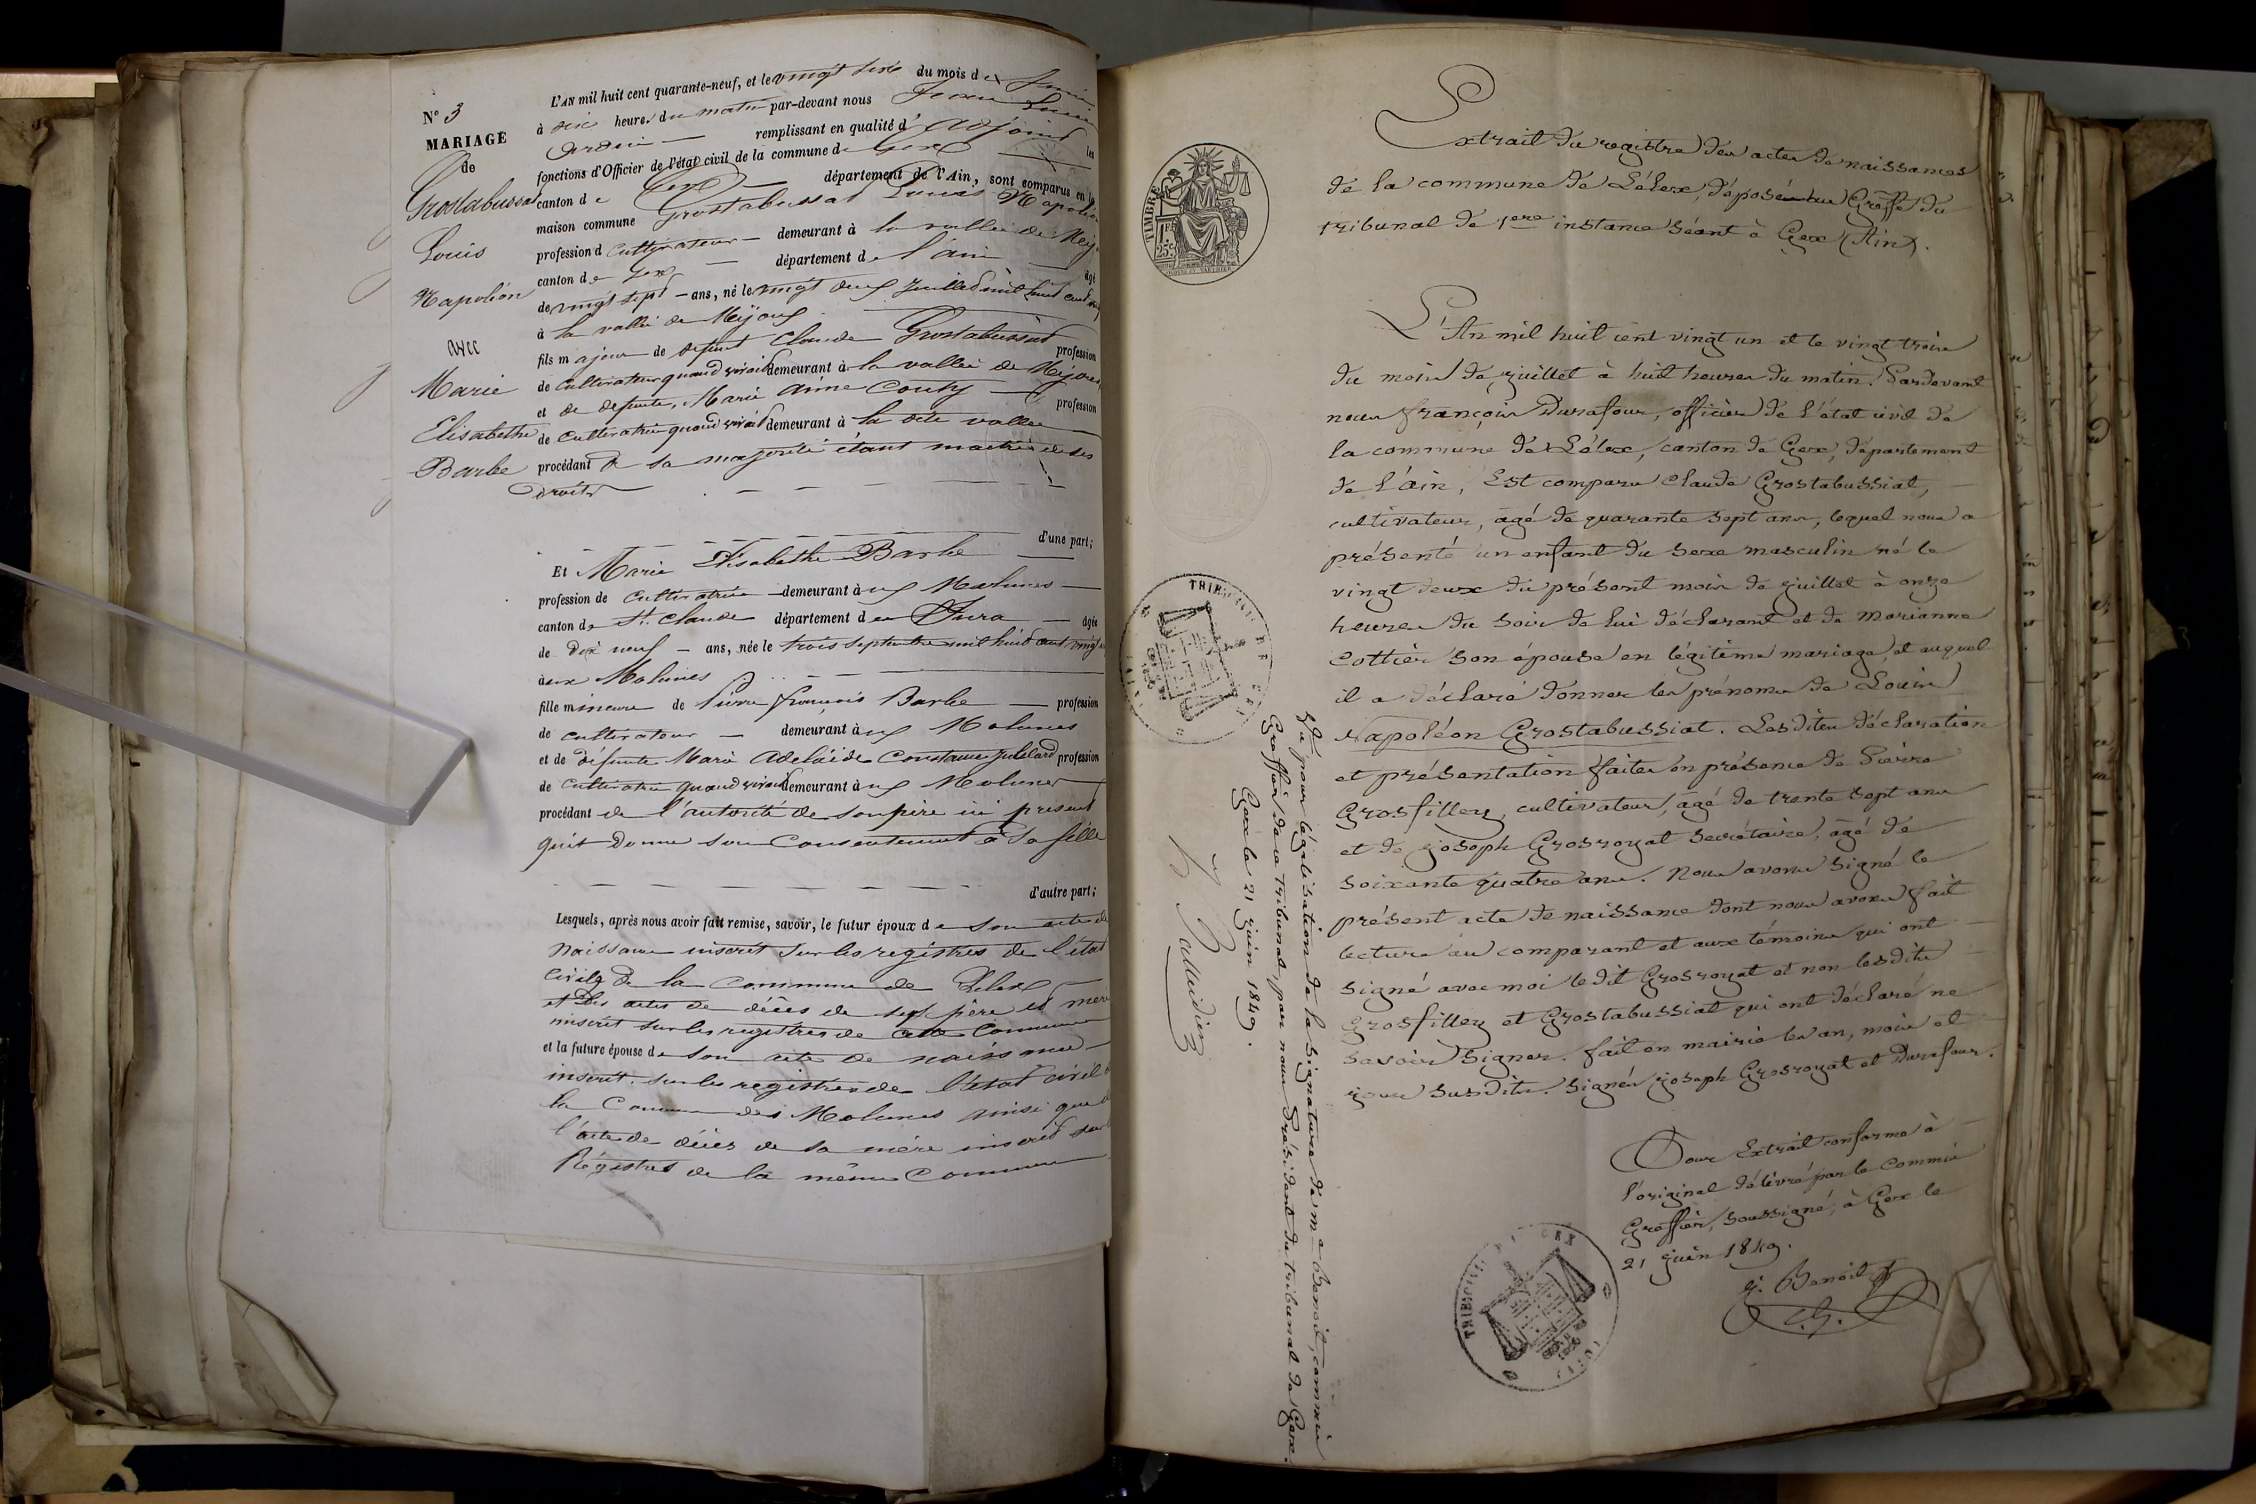 N° 3
MARIAGE
de
Grostabussat
Louis
Napoléon
avec
Marie
Elisabethe
Barbe
L'AN mil huit cent quarante-neuf, et le vingt six du mois de Juin
à dix heures du matin par-devant nous
remplissant en qualité d'adjoint les
fonctions d'Officier de l'état civil de la commune de Gex
canton de Gex département de l'Ain, sont comparus en la
maison commune Grostabussat Louis Napoléon
profession d cultivateur demeurant à la vallée de Mijoux
canton de Gex département de l'ain âgé
de vingt sept ans, né le vingt deux Juillet mil huit cent vingt
à la vallée de Mijoux
fils majeur de defunt Claude Grostabussat profession
de Cultivateur quand vivait demeurant à la vallée de Mijoux
et de defunte Marie Anne Couty profession
de cultivatrice quand vivait demeurant à la dite vallée
procédant de sa majorité étant maitre de ses
droits
d'une part;
Et Marie Elisabethe Barbe
profession de cultivatrice demeurant aux Molunes
canton de St. Claude département du Jura âgée
de dix neuf ans, née le trois septembre mil huit cent vingt
aux Molunes
fille mineure de Pierre françois Barbe profession
de cultivateur demeurant aux Molunes
et de défunte Marie Adelaïde Constance profession
de Cultivatrice quand vivait demeurant aux Molunes
procédant de l'autorité de son père ici present
qui donne son Consentement à sa fille
d'autre part;
Lesquels, après nous avoir fait remise, savoir, le futur époux de son acte de
Naissance inscrit sur les registres de l'état
Civil de la Commune de Lelex
et des actes de décès de ses père et mère
inscrit sur les registres de cette Commune
et la future épouse de son acte de naissance
inscrit sur les registres de l'état civil de
la Commune des Molunes ainsi que
l'acte de décès de sa mère inscrit sur
Régistres de la même Commune
TIMBRE
1F
25c
Extrait du registre des actes de naissances
de la commune de Lélex, déposé au Greffe du
tribunal de 1ere instance séant à Gex (Ain).
L'An mil huit cent vingt un et le vingt trois
du mois de juillet à huit heures du matin. Pardevant
nous françois Durafour, officier de l'état civil de
la commune de Lélex, canton de Gex, département
de l'ain, Est comparu Claude Grostabussiat,
cultivateur, agé de quarante sept ans, lequel nous a
présenté un enfant du sexe masculin né le
vingt deux du présent mois de juillet à onze
heures du soir de lui déclarant et de Marianne
Cottier son épouse en légitime mariage, et auquel
il a déclaré donner les prénoms de Louis
Napoléon Grostabussiat. Lesdites déclaration
et présentation faites en présence de Pierre
Grosfilley, cultivateur, agé de trente sept ans
et de joseph Grosroyat secrétaire, âgé de
soixante quatre ans. Nous avons signé le
présent acte de naissance dont nous avons fait
lecture au comparant et aux témoins qui ont
signé avec moi le dit Grosroyat et non lesdits
Grosfilley et Grostabussiat qui ont déclaré ne
savoir signer. fait en mairie les an, mois et
jour susdits. Signés joseph Grosroyat et Durafour.
Pour Extrait conforme à
l'original délivré par le Commis
Greffier, soussigné, à Gex le
21 juin 1849.
J. Benoit
C.G.
Vu pour légalisation de la signature de me Benoit, commis
Greffier de ce tribunal, par nous Président du tribunal de Gex.
Gex le 21 juin 1849.